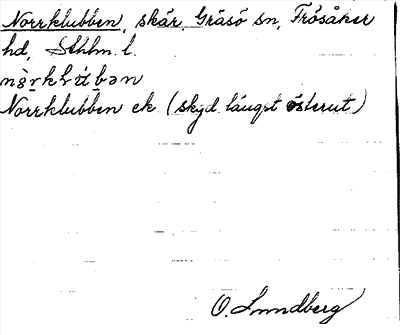 Norrklubben, skär, Gräsö sn, Frösåker
hd, Sthlm. l.
Norrklubben ek. (skyd. längst österut)
O. Lundberg